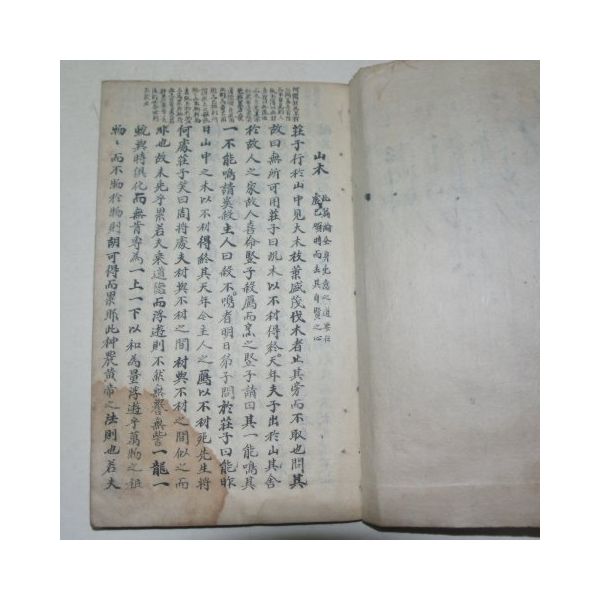 山木
此篇論全身免患之道要在
處己順時而去其自賢之心
莊子行於山中見大木枝葉盛茂伐木者止其旁而不取也問其
故曰無所可用莊子曰此木以不材得終天年夫子出於山其舍
於故人之家故人喜命豎子殺鴈而烹之豎子請曰其一能鳴其
一不能鳴請奚殺主人曰殺不鳴者明日弟子問於莊子曰昨
日山中之木以不材得終其天年今主人之鴈以不材死先生將
何處莊子笑曰周將處夫材與不材之間材與不材之間似之而
非也故未免乎累若夫乘道德而浮遊則不然無譽無訾一龍一
蛇與時俱化而無肯專爲一上一下以和為量浮遊乎萬物之祖
物〻而不物於物則胡可得而累耶此神農黃帝之法則也若夫